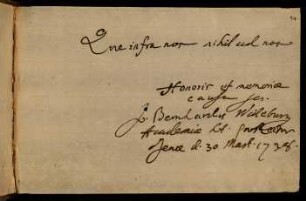 Que infra nos nihil ad nos
Honoris et memoriæ
causa scr.
Jo. Bernhardus Wideburg
Academiæ h. t.
Jenæ d. 30 Mart. 1738